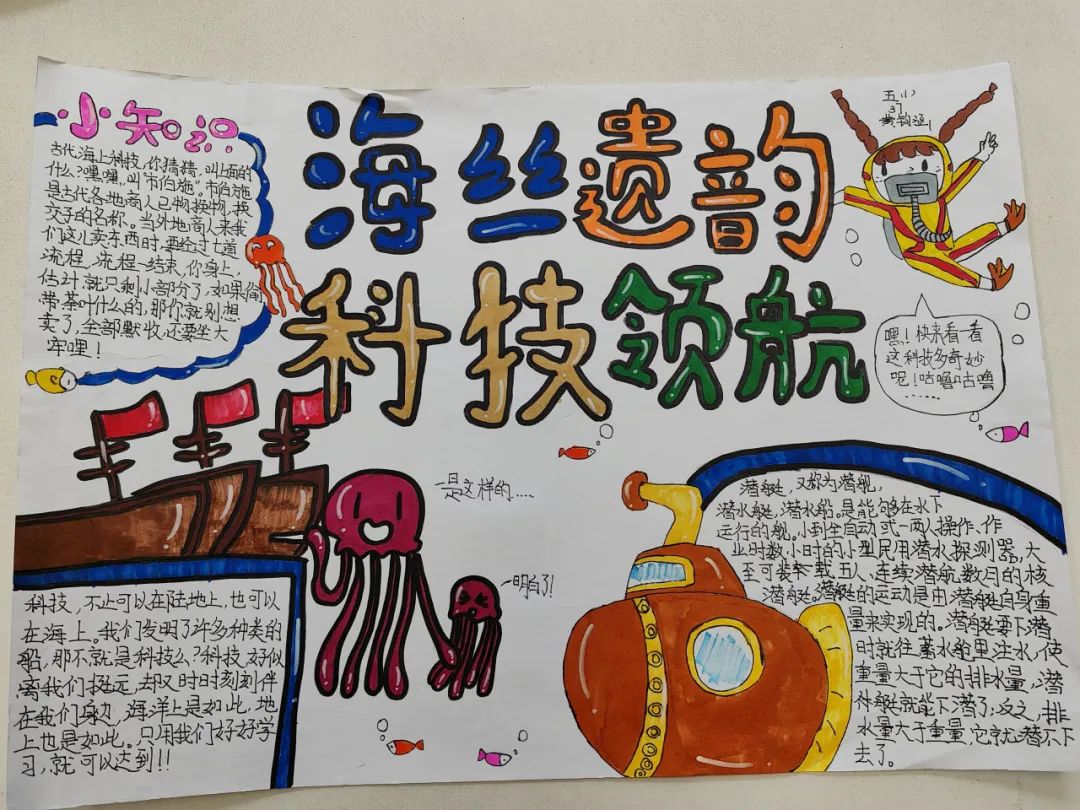 海丝遗韵
科技领航
五(1)
37
小知识
古代海上科技,你猜猜,叫上面的
什么?嘿嘿,叫"市伯施"。市伯施
是古代各地商人已物换物,换
交子的名称。当外地商人来我
们这儿卖东西时,要经过七道
流程,流程一结束,你身上,
估计就只剩小部分了,如果偷
带茶叶什么的,那你就别想
卖了,全部默收,还要坐大
牢哩!
嘿!快来看一看
这科技多奇妙
呢!咕噜咕噜
……
是这样的……
明白了!
科技,不止可以在陆地上,也可以
在海上。我们发明了许多种类的
船,那不就是科技么?科技,好似
离我们挺远,却又时时刻刻伴
在我们身边,海洋上是如此,地
上也是如此。只用我们好好学
习,就可以达到!!
潜艇,又称为潜船,
潜水艇,潜水船。是能够在水下
运行的舰。小到全自动或一两人操作、作
业时数小时的小型民用潜水探测器,大
至可装载五人、连续潜航数月的核
潜艇。潜艇的运动是由潜艇自身重
量来实现的。潜艇要下潜
时就往蓄水舱里注水,使
重量大于它的排水量,潜
艇就能下潜了;反之,排
水量大于重量,它就潜不下
去了。